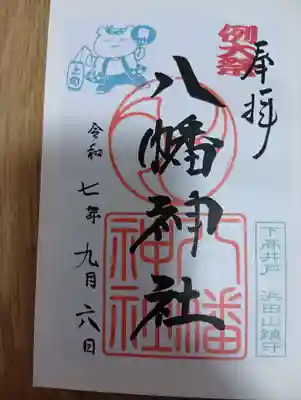 奉拝
例大祭
八幡神社
八幡神社
下高井戸 浜田山鎮守
令和七年九月六日
上高